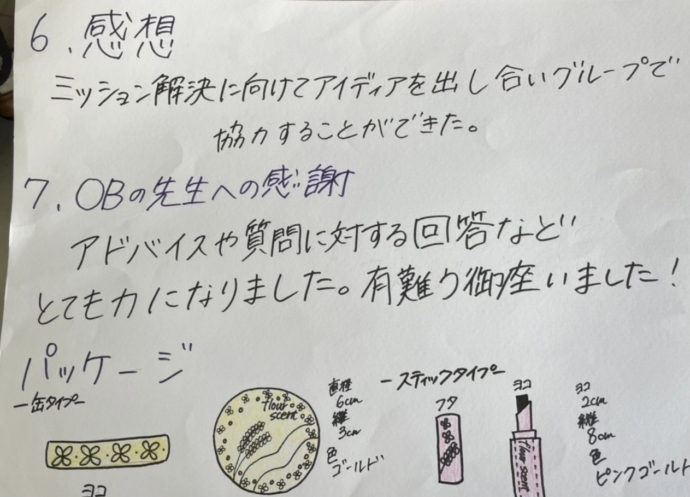 6、感想
ミッション解決に向けてアイディアを出し合いグループで
協力することができた。
7、OBの先生への感謝
アドバイスや質問に対する回答など
とても力になりました。有難う御座いました！
パッケージ
ー缶タイプー
ヨコ
flour
scent
直径
6cm
縦
3cm
色
ゴールド
ースティックタイプー
フタ
ヨコ
flour scent
ヨコ
2cm
縦
8cm
色
ピンクゴールド